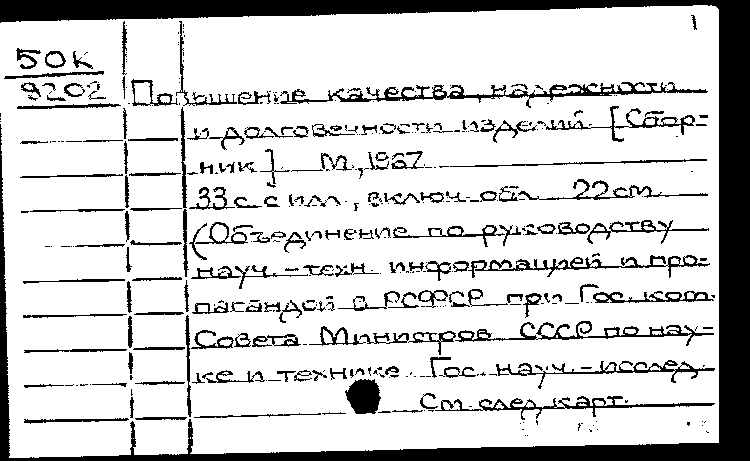 1
50К
9202
Повышение качества, надежности
и долговечности изделий [Сбор=
ник]. М., 1967
33 с. с илл., включ. обл. 22 cm.
(Объединение по руководству
науч.-техн. информацией и про=
пагандой в РСФСР при Гос. ком.
Совета Министров СССР по нау=
ке и технике. Гос. науч.-исслед.
См. след. карт.